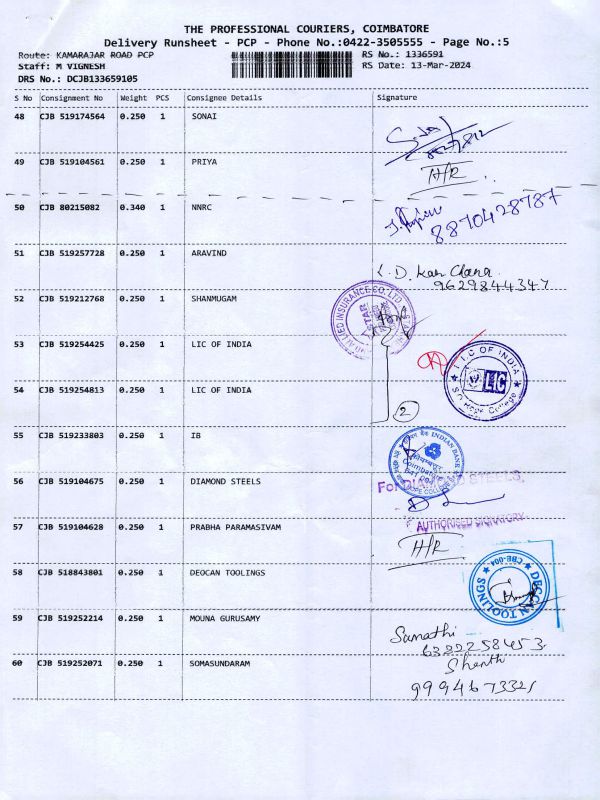 THE PROFESSIONAL COURIERS, COIMBATORE
Delivery Runsheet - PCP - Phone No.:0422-3505555 - Page No.:5
Route: KAMARAJAR ROAD PCP RS No.: 1336591
Staff: M VIGNESH RS Date: 13-Mar-2024
DRS No.: DCJB133659105
S No Consignment No Weight PCS Consignee Details Signature
48 CJB 519174564 0.250 1 SONAI
49 CJB 519104561 0.250 1 PRIYA H/R
50 CJB 80215082 0.340 1 NNRC 8870428787
51 CJB 519257728 0.250 1 ARAVIND
9629844347
52 CJB 519212768 0.250 1 SHANMUGAM
53 CJB 519254425 0.250 1 LIC OF INDIA L I C OF INDIA
LIC
54 CJB 519254813 0.250 1 LIC OF INDIA 2
55 CJB 519233803 0.250 1 IB INDIAN BANK
Coimbatore
641 004
56 CJB 519104675 0.250 1 DIAMOND STEELS For DIAMOND STEELS,
AUTHORISED SIGNATORY
57 CJB 519104628 0.250 1 PRABHA PARAMASIVAM H/R
58 CJB 518843801 0.250 1 DEOCAN TOOLINGS DECCAN TOOLINGS
CBE-004
59 CJB 519252214 0.250 1 MOUNA GURUSAMY Sumathi
60 CJB 519252071 0.250 1 SOMASUNDARAM Shanthi